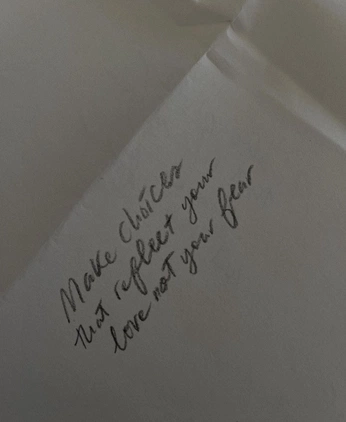 Make choices
that reflect your
love not your fear